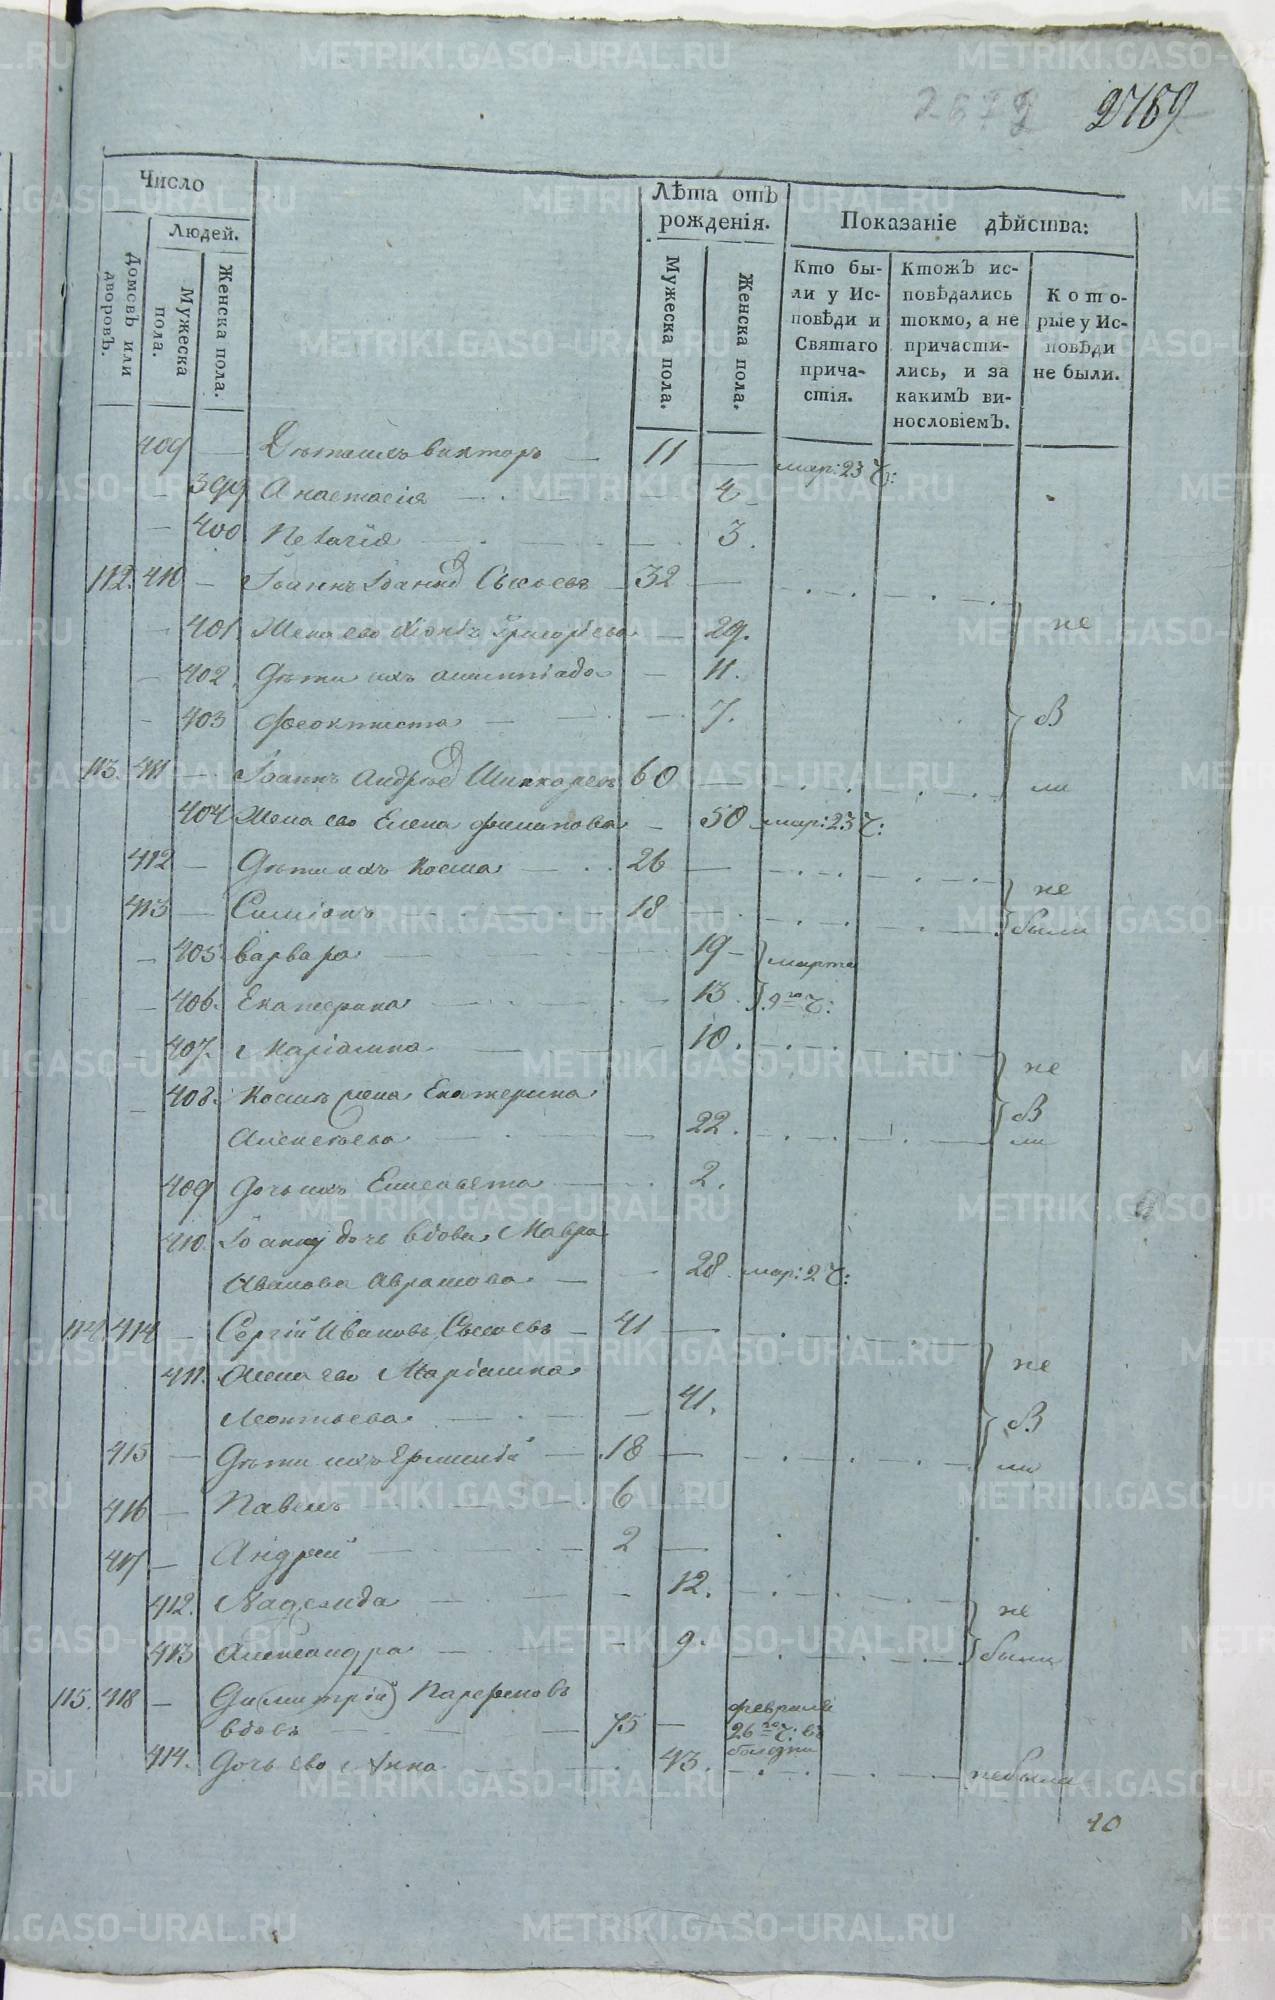 2759
Число
Людей.
Домовъ или дворовъ.
Мужеска пола.
Женска пола.
Лѣта отъ рожденія.
Мужеска пола.
Женска пола.
Показаніе дѣйства:
Кто бы-
ли у Ис-
повѣди и
Святаго
прича-
стія.
Ктожъ ис-
повѣдались
токмо, а не
причасти-
лись, и за
какимъ ви-
нословіемъ.
Кото-
рые у Ис-
повѣди
не были.
409 — Викторъ — 11 — мар: 23 ч:
— 399 Анастасія — 4
— 400 — 3.
112. 410 — Іоаннъ Сысоевъ — 32 —
— 401 Жена его Григорьева — 29. не
— 402 Дѣти ихъ — 11.
— 403 Феоктиста — 7. бы
113. 411 — Іоаннъ Андрѣевъ 60 — ли
404 Жена его Елена Филипова — 50 мар: 23 ч:
412 — Дѣти ихъ Косма — 26 — не
413 — Симіонъ — 18 были
— 405 Варвара — 19 — марта
— 406. Екатерина — 13. 9го ч:
— 407. Маріамна — 10. не
— 408. Космы жена Екатерина бы
Алексѣева — 22. ли
409 Дочь ихъ Елисавета — 2.
410. дочь вдова Мавра
Иванова — 28. мар: 2 ч:
114. 414 — Сергій Ивановъ Сысоевъ — 41 —
411. Жена его Маріамна не
Леонтьева — 41. бы
415 — Дѣти ихъ — 18 — ли
416 — Павелъ — 6
417 — Андрей — 2 —
412. Надежда — 12. не
413 Александра — 9. были
115. 418 — Димитрій Парфеновъ февраля
вдовъ — 75 — 26го ч: въ
болезни
414. Дочь его Анна — 43. не были
10
METRIKI.GASO-URAL.RU